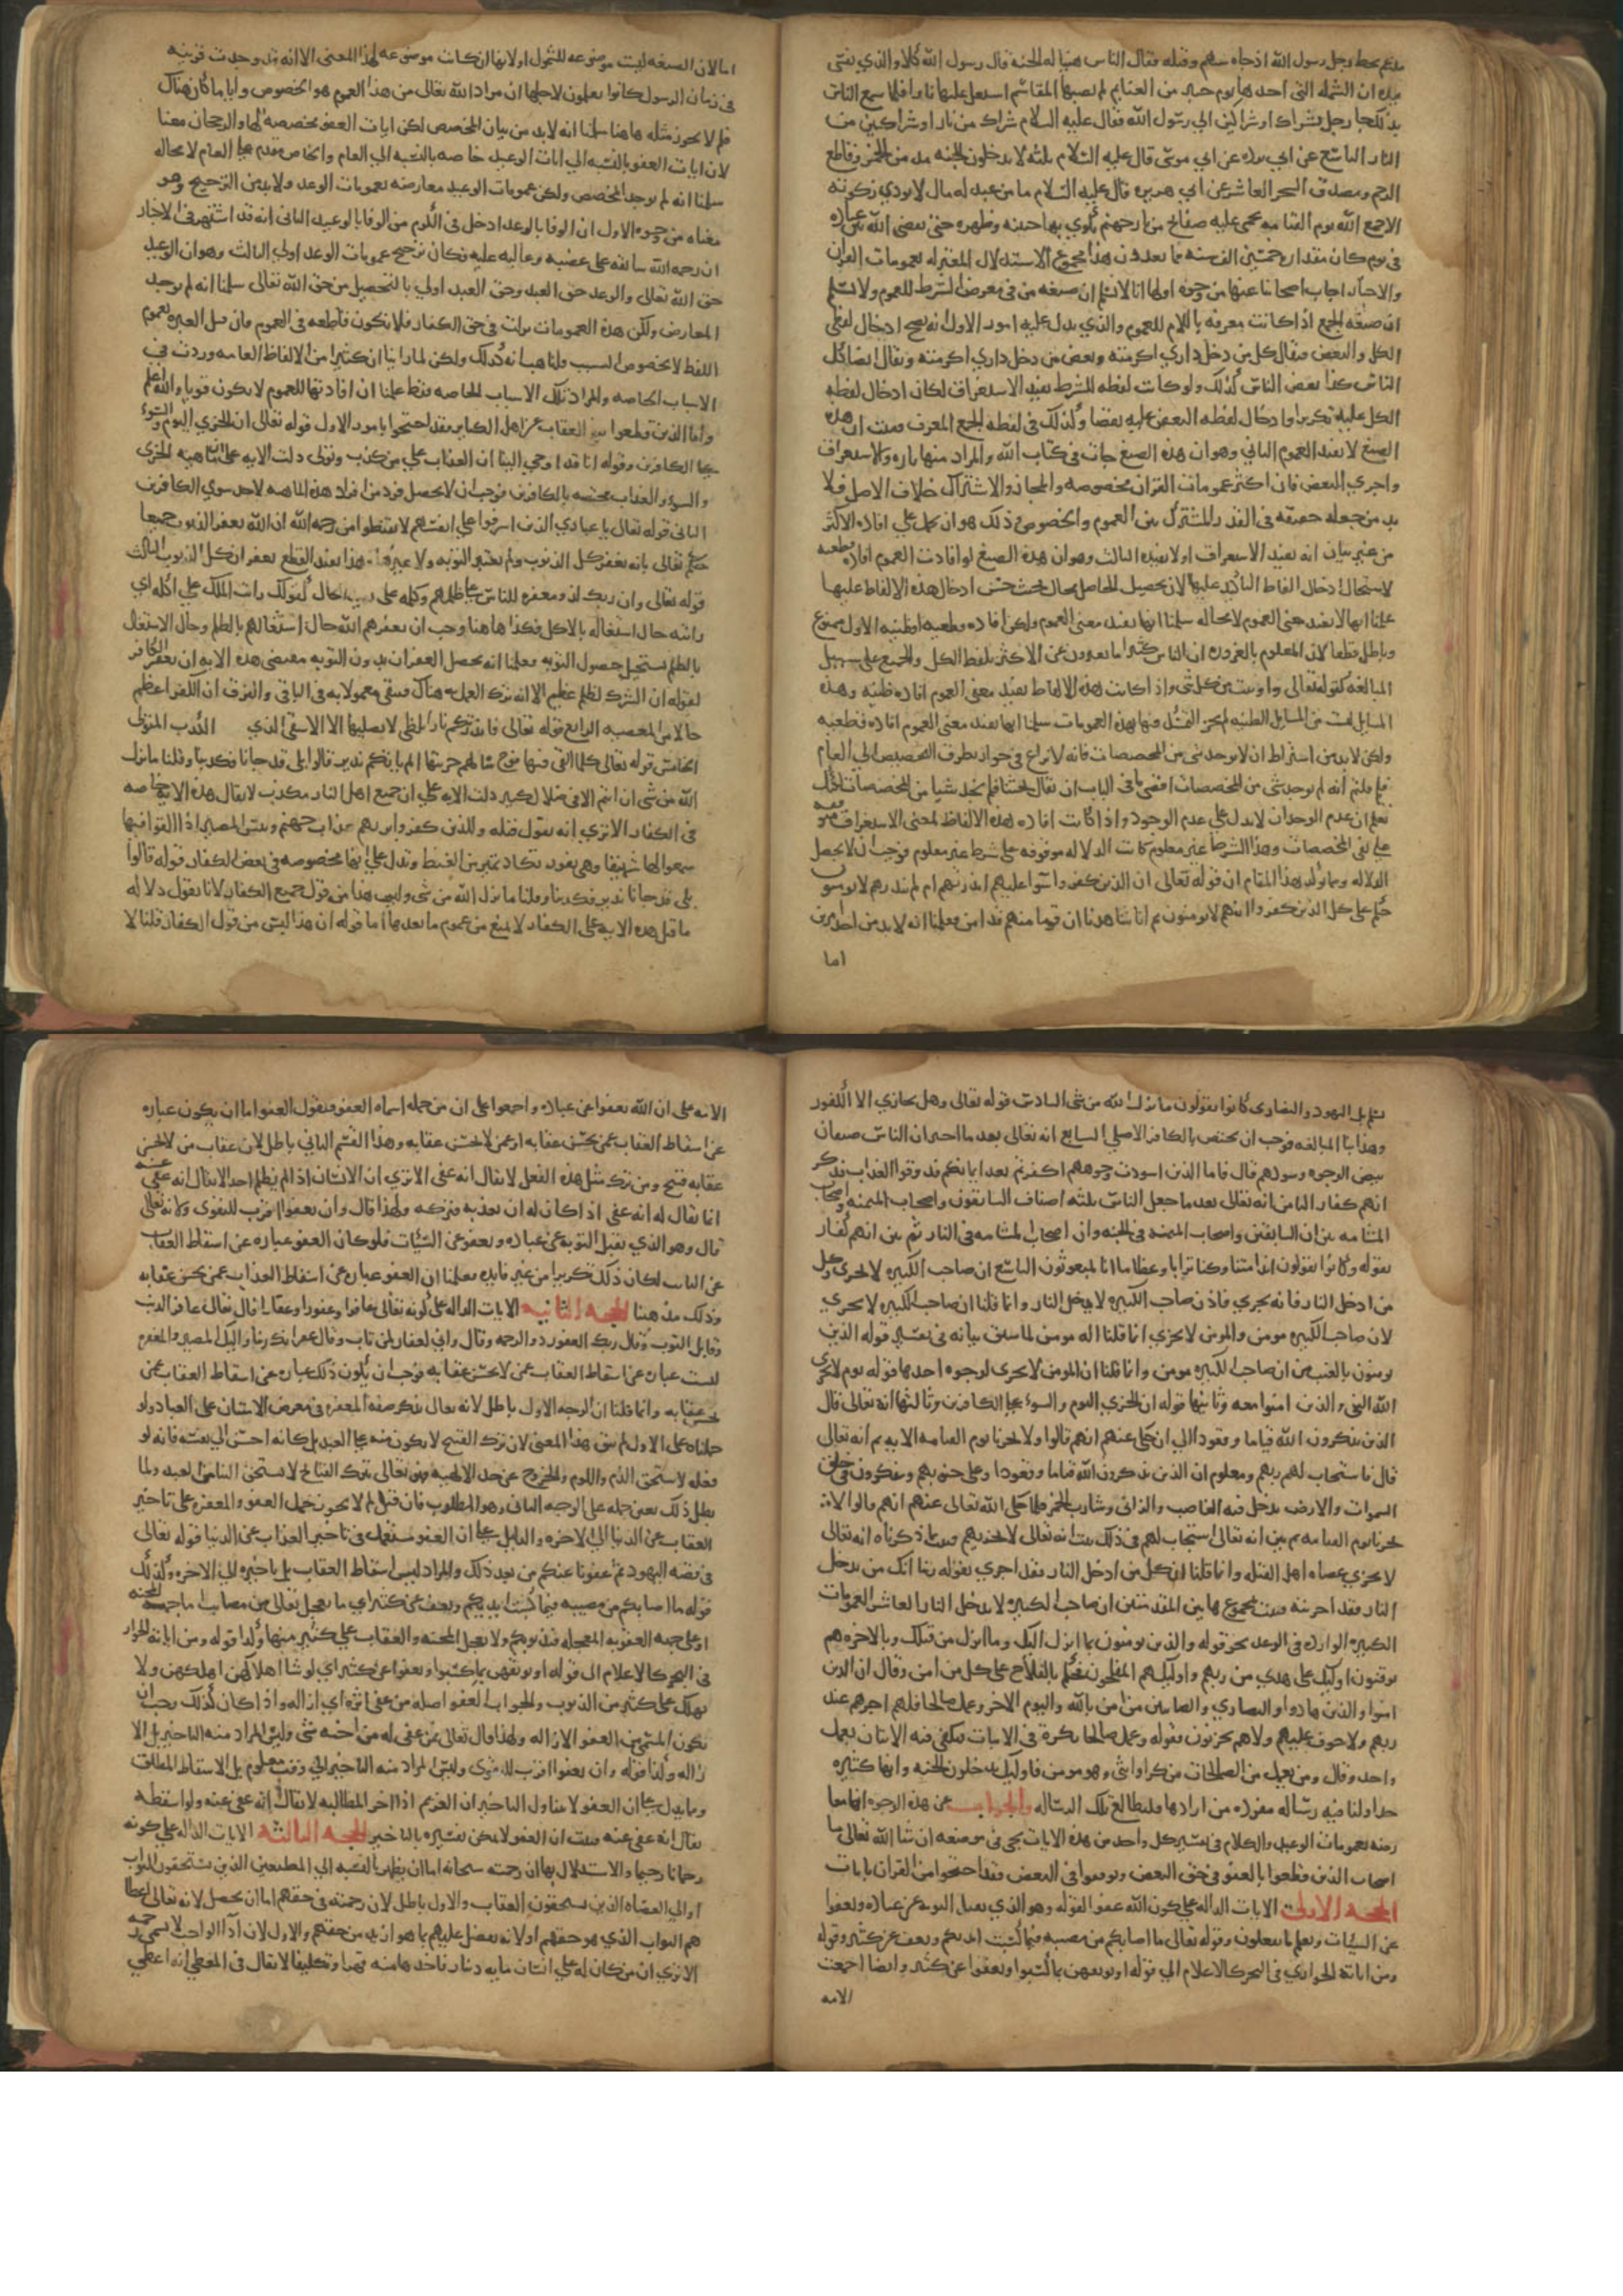 مدعم يحط رحل رسول الله اذ جاه سهم وقتله فقال الناس هنيا له الجنه قال رسول الله كلا والذي نفسي
بيده ان الشمله التي احدها يوم حنين من الغنايم لم تصبها المقاسم لتشتعل عليها نارا فلما سمع الناس
بذلك جا رجل بشراك او شراكين الي رسول الله فقال عليه السلام شراك من نار او شراكين من
النار التاسع عن ابي برده عن ابي موسى قال عليه السلام ثلثه لا يدخلون الجنه مدمن الخمر وقاطع
الرحم ومصدق السحر العاشر عن ابي هريره قال عليه السلام ما من عبد له مال لا يودي زكوته
الا جمع الله يوم القيامه يحمى عليه صفائح من نار جهنم يكوي بها جبينه وظهره حتى يقضي الله بين عباده
في يوم كان مقداره خمسين الف سنه مما يعدون هذا مجموع الاستدلال المعتزله بعمومات القران
والاخبار اجاب اصحابنا عنها من وجوه اولها انا لا نسلم ان صيغه من في معرض الشرط للعموم ولا نسلم
ان صيغه الجمع اذا كانت معرفه باللام للعموم والذي يدل عليه امور الاول انه يصح ادخال لفظي
الكل والبعض فيقال كل من دخل داري اكرمته وبعض من دخل داري اكرمته ويقال ايضا كل
الناس كذا بعض الناس كذلك ولو كانت لفظه للشرط يفيد الاستغراق لكان ادخال لفظه
الكل عليه تكريرا وادخال لفظه البعض عليه نقضا وكذلك في لفظه الجمع المعرف فثبت ان هذه
الصيغ لا تفيد العموم الثاني وهو ان هذه الصيغ جات في كتاب الله والمراد منها تاره الاستغراق
واخرى البعض فان اكثر عمومات القران مخصوصه والمجاز والاشتراك خلاف الاصل فلا
بد من جعله حقيقه في القدر المشترك بين العموم والخصوص وذلك هو ان يحمل على افاده الاكثر
من غير بيان انه يفيد الاستغراق اولا يفيد الثالث وهو ان هذه الصيغ لو افادت العموم افاده قطعيه
لاستحال ادخال الفاظ التاكيد عليها لان تحصيل الحاصل محال فحيث حسن ادخال هذه الالفاظ عليها
علمنا انها لا تفيد معنى العموم لا محاله سلمنا انها تفيد معنى العموم ولكن افاده قطعيه او ظنيه الاول ممنوع
وباطل قطعا لان المعلوم بالضروره ان الناس كثيرا ما يعبرون عن الاكثر بلفظ الكل والجميع على سبيل
المبالغه كقوله تعالى واوتيت من كل شي واذا كانت هذه الالفاظ تفيد معنى العموم افاده ظنيه وهذه
المسايل ليست من المسايل الظنيه لم يجز التمسك فيها بهذه العمومات سلمنا انها تفيد معنى العموم افاده قطعيه
ولكن لا بد من اشتراط ان لا يوجد شي من المخصصات فانه لا نزاع في جواز تطرق التخصيص الي العام
فلم قلتم انه لم يوجد شي من المخصصات اقصى ما في الباب ان يقال بحثنا فلم نجد شيا من المخصصات لكنك
تعلم ان عدم الوجدان لا يدل علي عدم الوجود واذا كانت افاده هذه الالفاظ لمعنى الاستغراق متوقفه
علي نفي المخصصات وهذا الشرط غير معلوم كانت الدلاله موقوفه على شرط غير معلوم فوجب ان لا يحصل
الدلاله ومما يوكد هذا المقام ان قوله تعالى ان الذين كفروا سوا عليهم اانذرتهم ام لم تنذرهم لا يومنون
حكم على كل الذين كفروا انهم لا يومنون ثم انا شاهدنا ان قوما منهم قد امن فعلمنا انه لا بد من احد امرين
اما
اما لان الصيغه ليست موضوعه للشمول او لانها ان كانت موضوعه لهذا المعنى الا انه قد وجدت قرينه
في زمان الرسول كانوا يعلمون لاجلها ان مراد الله تعالى من هذا العموم هو الخصوص وايا ما كان هناك
فلم لا يجوز مثله هاهنا سلمنا انه لا بد من بيان المخصص لكن ايات العفو مخصصه لها والرجحان معنا
لان ايات العفو بالنسبه الي ايات الوعيد خاصه بالنسبه الي العام والخاص مقدم على العام لا محاله
سلمنا انه لم يوجد المخصص ولكن عمومات الوعيد معارضه بعمومات الوعد ولا بد من الترجيح وهو
معنا من وجوه الاول ان الوفا بالوعد ادخل في الكرم من الوفا بالوعيد الثاني انه قد اشتهر في الاخبار
ان رحمه الله سابقه على غضبه وغالبه عليه وكان ترجيح عمومات الوعد اولي الثالث وهو ان الوعيد
حق الله تعالى والوعد حق العبد وحق العبد اولي بالتحصيل من حق الله تعالى سلمنا انه لم يوجد
المعارض ولكن هذه العمومات نزلت في حق الكفار فلا تكون قاطعه في العموم فان قيل العبره بعموم
اللفظ لا بخصوص السبب قلنا هب انه كذلك ولكن لما راينا ان كثيرا من الالفاظ العامه وردت في
الاسباب الخاصه والمراد تلك الاسباب الخاصه فقط علمنا ان افادتها للعموم لا يكون قويا والله اعلم
واما الذين قطعوا بنفي العقاب عن اهل الكباير فقد احتجوا بامور الاول قوله تعالى ان الخزي اليوم والسوء
على الكافرين وقوله انا قد اوحي الينا ان العذاب علي من كذب وتولى دلت الايه على ان ماهيه الخزي
والسوء والعذاب مختصه بالكافرين فوجب ان لا يحصل فرد من افراد هذه الماهيه لاحد سوي الكافرين
الثاني قوله تعالى يا عبادي الذين اسرفوا علي انفسهم لا تقنطوا من رحمه الله ان الله يغفر الذنوب جميعا
حكم تعالى بانه يغفر كل الذنوب ولم يعتبر التوبه ولا غيرها وهذا يفيد القطع بغفران كل الذنوب الثالث
قوله تعالى وان ربك لذو مغفره للناس على ظلمهم وكلمه على تفيد الحال كقولك رايت الملك علي اكله اي
رايته حال اشتغاله بالاكل فكذا هاهنا وجب ان يغفرهم الله حال اشتغالهم بالظلم وحال الاشتغال
بالظلم يستحيل حصول التوبه فعلمنا انه يحصل الغفران بدون التوبه مقتضى هذه الايه ان يغفر للكافر
لقوله ان الشرك لظلم عظيم الا انه ترك العمل به هناك فبقي معمولا به في الباقي والفرق ان الكفر اعظم
حالا من المعصيه الرابع قوله تعالى فانذرتكم نارا تلظى لا يصليها الا الاشقى الذي كذب وتولى
الخامس قوله تعالى كلما القي فيها فوج سالهم خزنتها الم ياتكم نذير قالوا بلى قد جانا فكذبنا وقلنا ما نزل
الله من شي ان انتم الا في ضلال كبير دلت الايه علي ان جميع اهل النار مكذب لا يقال هذه الايه خاصه
في الكفار الا ترى انه يقول قبله وللذين كفروا بربهم عذاب جهنم وبيس المصير اذا القوا فيها
سمعوا لها شهيقا وهي تفور تكاد تميز من الغيظ وتدل علي انها مخصوصه في بعض الكفار قوله قالوا
بلى قد جانا نذير فكذبنا وقلنا ما نزل الله من شي وليس هذا من قول جميع الكفار لانا نقول دلاله
ما قبل هذه الايه على الكفار لا يمنع من عموم ما بعدها اما قوله ان هذا ليس من قول الكفار قلنا لا
نسلم بل اليهود والنصارى كانوا يقولون ما نزل الله من شي السادس قوله تعالى وهل يجازي الا الكفور
وهذا بنا المبالغه فوجب ان يختص بالكافر الاصلي السابع انه تعالى بعد ما اخبر ان الناس صنفان
بيض الوجوه وسودهم قال فاما الذين اسودت وجوههم اكفرتم بعد ايمانكم فذوقوا العذاب فذكر
انهم كفار الثامن انه تعالى بعد ما جعل الناس ثلثه اصناف السابقون واصحاب الميمنه واصحاب
المشامه بين ان السابقين واصحاب الميمنه في الجنه وان اصحاب المشامه في النار ثم بين انهم كفار
بقوله وكانوا يقولون ائذا متنا وكنا ترابا وعظاما ائنا لمبعوثون التاسع ان صاحب الكبيره لا يخزى وكل
من ادخل النار فانه يخزي فاذن صاحب الكبيره لا يدخل النار وانما قلنا ان صاحب الكبيره لا يخزي
لان صاحب الكبيره مومن والمومن لا يخزي انما قلنا انه مومن لما سبق بيانه في تفسير قوله الذين
يومنون بالغيب من ان صاحب الكبيره مومن وانما قلنا ان المومن لا يخزى لوجوه احدها قوله يوم لا يخزي
الله النبي والذين امنوا معه وثانيها قوله ان الخزي اليوم والسوء على الكافرين وثالثها انه تعالى قال
الذين يذكرون الله قياما وقعودا الي ان حكى عنهم انهم قالوا ولا تخزنا يوم القيامه الايه ثم انه تعالى
قال فاستجاب لهم ربهم ومعلوم ان الذين يذكرون الله قياما وقعودا وعلى جنوبهم ويتفكرون في خلق
السموات والارض يدخل فيه الغاصب والزاني وشارب الخمر فلما حكى الله تعالى عنهم انهم قالوا لا
تخزنا يوم القيامه ثم بين انه تعالى استجاب لهم في ذلك ثبت انه تعالى لا يخزيهم فثبت بما ذكرناه انه تعالى
لا يخزي عصاه اهل القبله وانما قلنا ان كل من ادخل النار فقد اخزي لقوله ربنا انك من تدخل
النار فقد اخزيته فثبت بمجموع هاتين المقدمتين ان صاحب الكبيره لا يدخل النار العاشر العمومات
الكثيره الوارده في الوعد نحو قوله والذين يومنون بما انزل اليك وما انزل من قبلك وبالاخره هم
يوقنون اوليك على هدي من ربهم واوليك هم المفلحون فحكم بالفلاح على كل من امن وقال ان الذين
امنوا والذين هادوا والنصارى والصابين من امن بالله واليوم الاخر وعمل صالحا فلهم اجرهم عند
ربهم ولا خوف عليهم ولا هم يحزنون فقوله وعمل صالحا نكرة في الاثبات فيكفي فيه الاتيان بعمل
واحد وقال ومن يعمل من الصالحات من ذكر او انثى وهو مومن فاوليك يدخلون الجنه وانها كثيره
جدا ولنا فيه رساله مفرده من ارادها فليطالع تلك الرساله والجواب عن هذه الوجوه انها معا
رضه بعمومات الوعيد والكلام في تفسير كل واحد من هذه الايات يجي في موضعه ان شا الله تعالى اما
اصحابنا الذين قطعوا بالعفو في حق البعض وتوقفوا في البعض فقد احتجوا من القران بايات
الحجه الاولى الايات الداله على كون الله عفوا لقوله وهو الذي يقبل التوبه عن عباده ويعفوا
عن السيات ويعلم ما تفعلون وقوله تعالى ما اصابكم من مصيبه فبما كسبت ايديكم ويعف عن كثير وقوله
ومن اياته الجواري في البحر كالاعلام الي قوله او يوبقهن بما كسبوا ويعفوا عن كثير وايضا اجمعت
الامه
الامه على ان الله يعفوا عن عباده واجمعوا على ان من جمله اسمايه العفو فنقول العفو اما ان يكون عباره
عن اسقاط العقاب عمن يحسن عقابه او عمن لا يحسن عقابه وهذا القسم الثاني باطل لان عقاب من لا يحسن
عقابه قبيح ومن ترك مثل هذا الفعل لا يقال انه عفى الا ترى ان الانسان اذا لم يظلم احدا لا يقال انه عفى عنه
انما يقال له انه عفى اذا كان له ان يعذبه فتركه ولهذا قال وان تعفوا اقرب للتقوى ولانه تعالى
قال وهو الذي يقبل التوبه عن عباده ويعفو عن السيات فلو كان العفو عباره عن اسقاط العقاب
عن التايب لكان ذلك تكريرا من غير فايده فعلمنا ان العفو عباره عن اسقاط العذاب عمن يحسن عقابه
وذلك مذهبنا الحجه الثانيه الايات الداله على كونه تعالى غافرا وغفورا وغفارا قال تعالى غافر الذنب
وقابل التوب وقال وربك الغفور ذو الرحمه وقال واني لغفار لمن تاب وقال غفرانك ربنا واليك المصير والمغفره
ليست عباره عن اسقاط العقاب عمن لا يحسن عقابه فوجب ان يكون ذلك عباره عن اسقاط العقاب عمن
يحسن عقابه وانما قلنا ان الوجه الاول باطل لانه تعالى يذكر صفه المغفره في معرض الامتنان على العباد ولو
حملناه على الاول لم يبق هذا المعنى لان ترك القبيح لا يكون منه على العبد بل كانه احسن الي نفسه فانه لو
فعله لاستحق الذم واللوم والخروج عن حد الالهيه فهو تعالى بترك القبايح لا يستحق الثنا من العبد ولما
بطل ذلك تعين حمله على الوجه الثاني وهو المطلوب فان قيل لم لا يجوز حمل العفو والمغفره على تاخير
العقاب عن الدنيا الي الاخره والدليل على ان العفو مستعمل في تاخير العذاب عن الدنيا قوله تعالى
في قصه اليهود ثم عفونا عنكم من بعد ذلك والمراد ليس اسقاط العقاب بل تاخيره الي الاخره وكذلك
قوله ما اصابكم من مصيبه فبما كسبت ايديكم ويعف عن كثير اي ما يعجل تعالى من مصايب اما جهه المحنه
او على جهه العقوبه المعجله فبذنوبكم ولا يعجل المحنه والعقاب علي كثير منها وكذا قوله ومن اياته الجوار
في البحر كالاعلام الى قوله او يوبقهن بما كسبوا ويعفوا عن كثير اي لو شا اهلاكهن لاهلكهن ولا
يهلك على كثير من الذنوب والجواب العفو اصله من عفى اثره اي ازاله واذا كان كذلك وجب ان
يكون المسمى من العفو الازاله ولهذا قال تعالى فمن عفى له من اخيه شي وليس المراد منه التاخير بل الا
زاله وكذا قوله وان تعفوا اقرب للتقوى وليس المراد منه التاخير الي وقت معلوم بل الاسقاط المطلق
ومما يدل على ان العفو لا يتناول التاخير ان الغريم اذا اخر المطالبه لا يقال انه عفى عنه ولو اسقطه
يقال انه عفى عنه فثبت ان العفو لا يمكن تفسيره بالتاخير الحجه الثالثه الايات الداله على كونه
رحمانا رحيما والاستدلال بها ان رحمته سبحانه اما ان يظهر بالنسبه الي المطيعين الذين يستحقون الثواب
او الي العصاه الذين يستحقون العقاب والاول باطل لان رحمته في حقهم اما ان يحصل لانه تعالى اعطا
هم الثواب الذي هو حقهم او لانه تفضل عليهم بما هو ازيد من حقهم والاول لان ادا الواجب لا يسمى رحمه
الا ترى ان من كان له علي انسان مايه دينار فاخذها منه قهرا وتكليفا لا يقال في المعطي انه اعطي